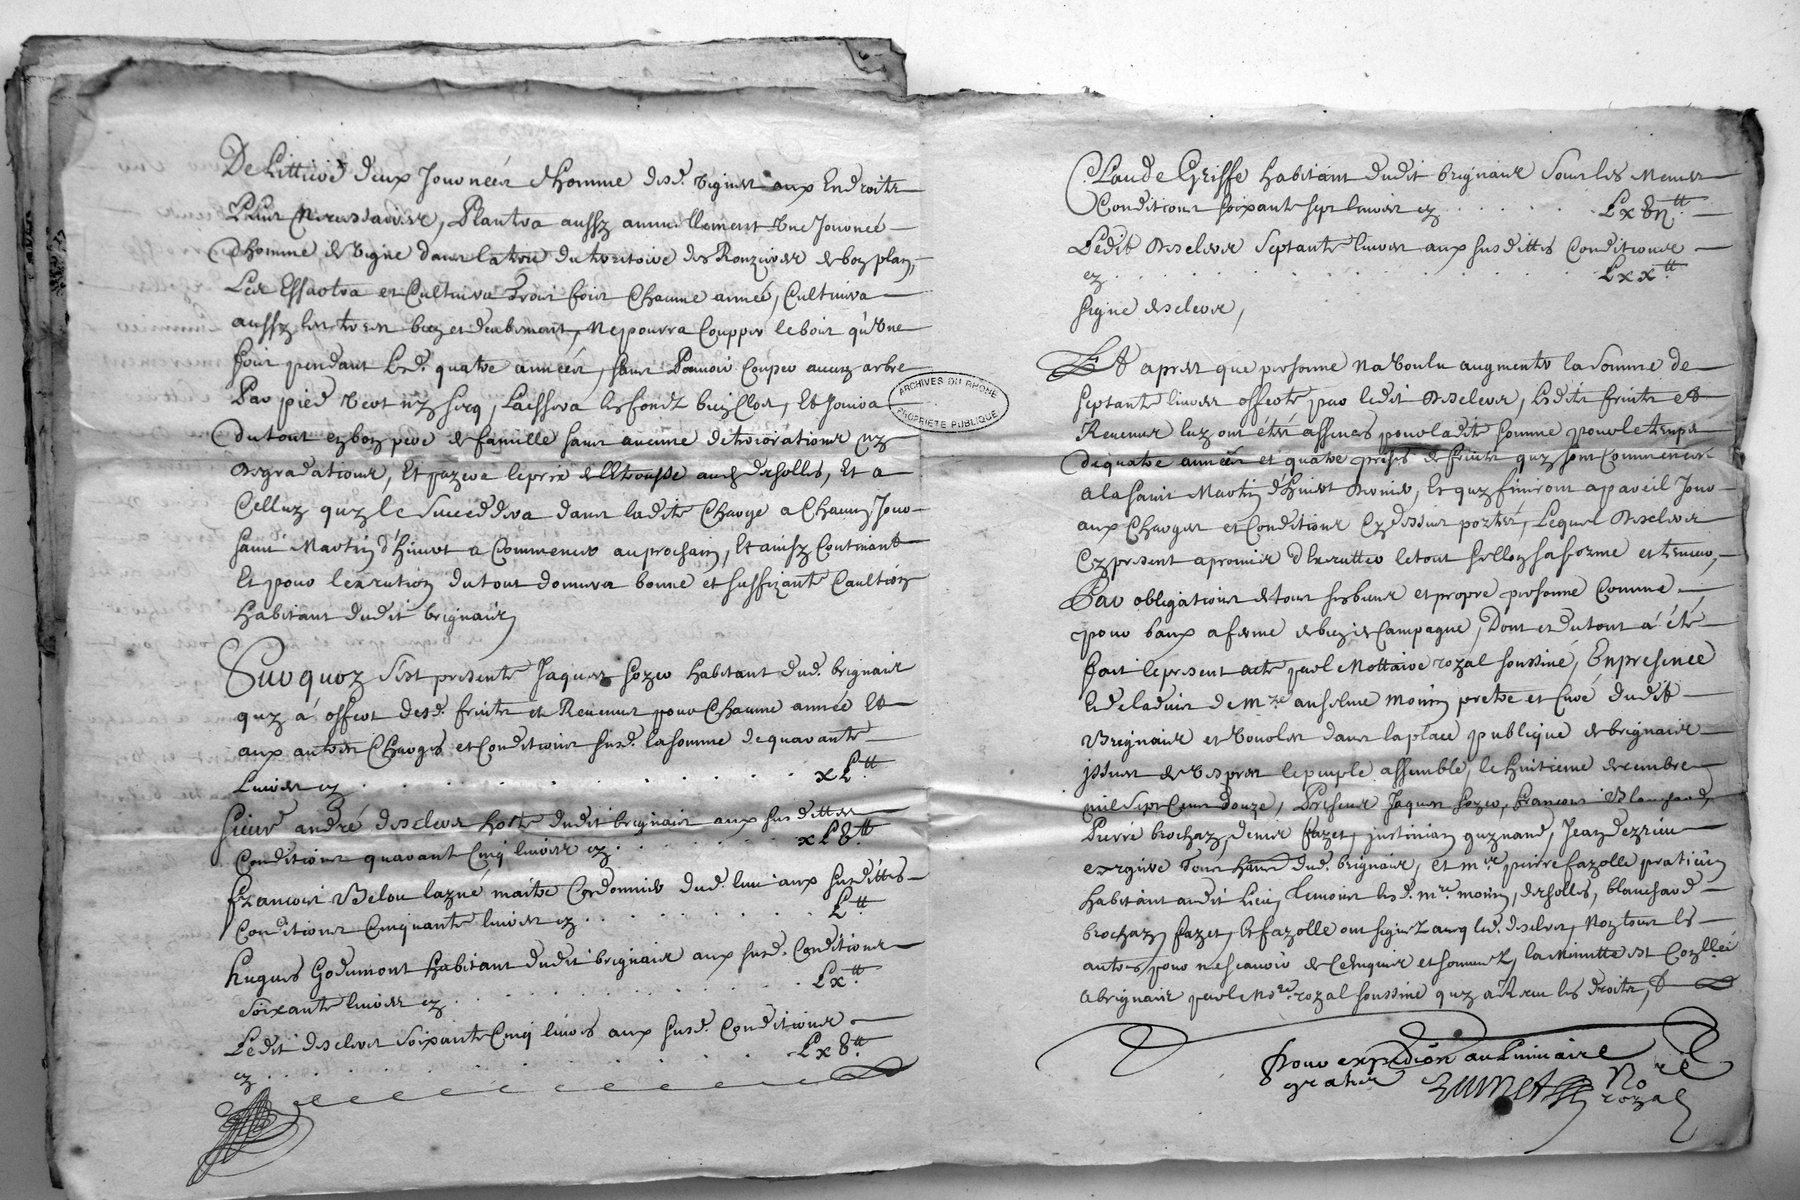 De Littieré deux Journéés d'homme desd. vignes aux Endroits
Plus Necessaires, Plantera aussy annuellement Une Journéé
d'homme de Vigne dans la terre du territoire des Ronzieres de bon plan,
Les Essartera et Cultivera trois fois Chacune année, Cultivera
aussy les terres bien et deubement, Ne pourra Coupper le bois qu'Une
fois pendant Lesd. quatre annéés, sans Pouvoir Couper aucun arbre
Par pied Vert ny secq, Laissera les fondz bien Clos, Et Jouira
du tout en bon pere de famille sans aucune deteriorations ny
degradations, Et payera le prix de aud. desolles, Et a
Celluy quy le Succeddera dans ladite Charge a Chacun Jour
saint Martin d'hivert a Commencer au prochain, Et ainsy Continant
Et pour lexecution du tout donnera bonne et suffizante Caultion
habitant dudit brignais,
Surquoy s'est presenté Jaques sozes habitant dud. brignais
quy à offert desd. fruits et Revenus pour Chacune année Et
aux autres Charges et Conditions susd. la somme de quarante
Livres cy . . . . . . . . . . xL.tt
sieur andré descleves hoste dudit brignais aux susdittes
Conditions quarant Cinq livres cy . . . . . . xL8.tt
françois Belou layné maitre Cordonnier dud. lieu aux susdittes
Conditions Cinquante livres cy . . . . . . . . L.tt
hugues Godemont habitant dudit brignais aux susd. Conditions
soixante livres cy . . . . . . . . . . Lx.tt
Ledit descleves soixante Cinq livres aux susd. Conditions
cy . . . . . . . . . . Lx8.tt
Claude Griffe habitant dudit brignais sous les Memes
Conditions soixante sept livres cy . . . . . Lx8ıı.tt
Ledit descleves septante livres aux susdittes Conditions
cy . . . . . . . . . . Lxx.tt
signé descleves,
Et apres que personne na Voulu augmenter la somme de
septante livres offerte par ledit descleves, Lesdits fruits et
Revenus luy ont étés assencés pour ladite somme pour le temps
de quatre années et quatre prises de fruits quy sont Commencés
a la saint Martin d'hivert dernier, Et quy finiront a pareil Jour
aux Charges et Conditions Cy dessus portés, Lequel descleves
Cy present a promis d'Executter le tout sellon sa forme et teneur,
Par obligations de tous ses biens et propre personne Comme
pour baux a ferme de bien de Campagne, Dont et du tout à été
fait le present acte par le Nottaire royal soussiné, En presence
Et de ladvis de mre anselme Monin pretre et Curé dudit
Brignais et Vourles dans la place publique de brignais
issues de Vespres le peuple assemblé, le huitieme decembre
mil sept Cens douze, Presens Jaques sozes, françois Blanchard,
Pierre brochay, denis fayet, justinian guynand, Jean dezrieu
exrgire Tous habts dud. brignais, et mre pierre fazolle pratitien
habitant audit Lieu, temoins lesd. mre monin, desolles, blanchard
brochay, fayet, & fazolle ont signéz avec led. descleves, Non tous les
autres pour ne scavoir de Ce Enquis et sommés, la Minutte est Con.lléé
a brignais par le No.re royal soussiné quy a Receu les droits, &
Pour expedi͠on au luminaire
gratis
No.re
royal
ARCHIVES DU RHONE
PROPRIETE PUBLIQUE